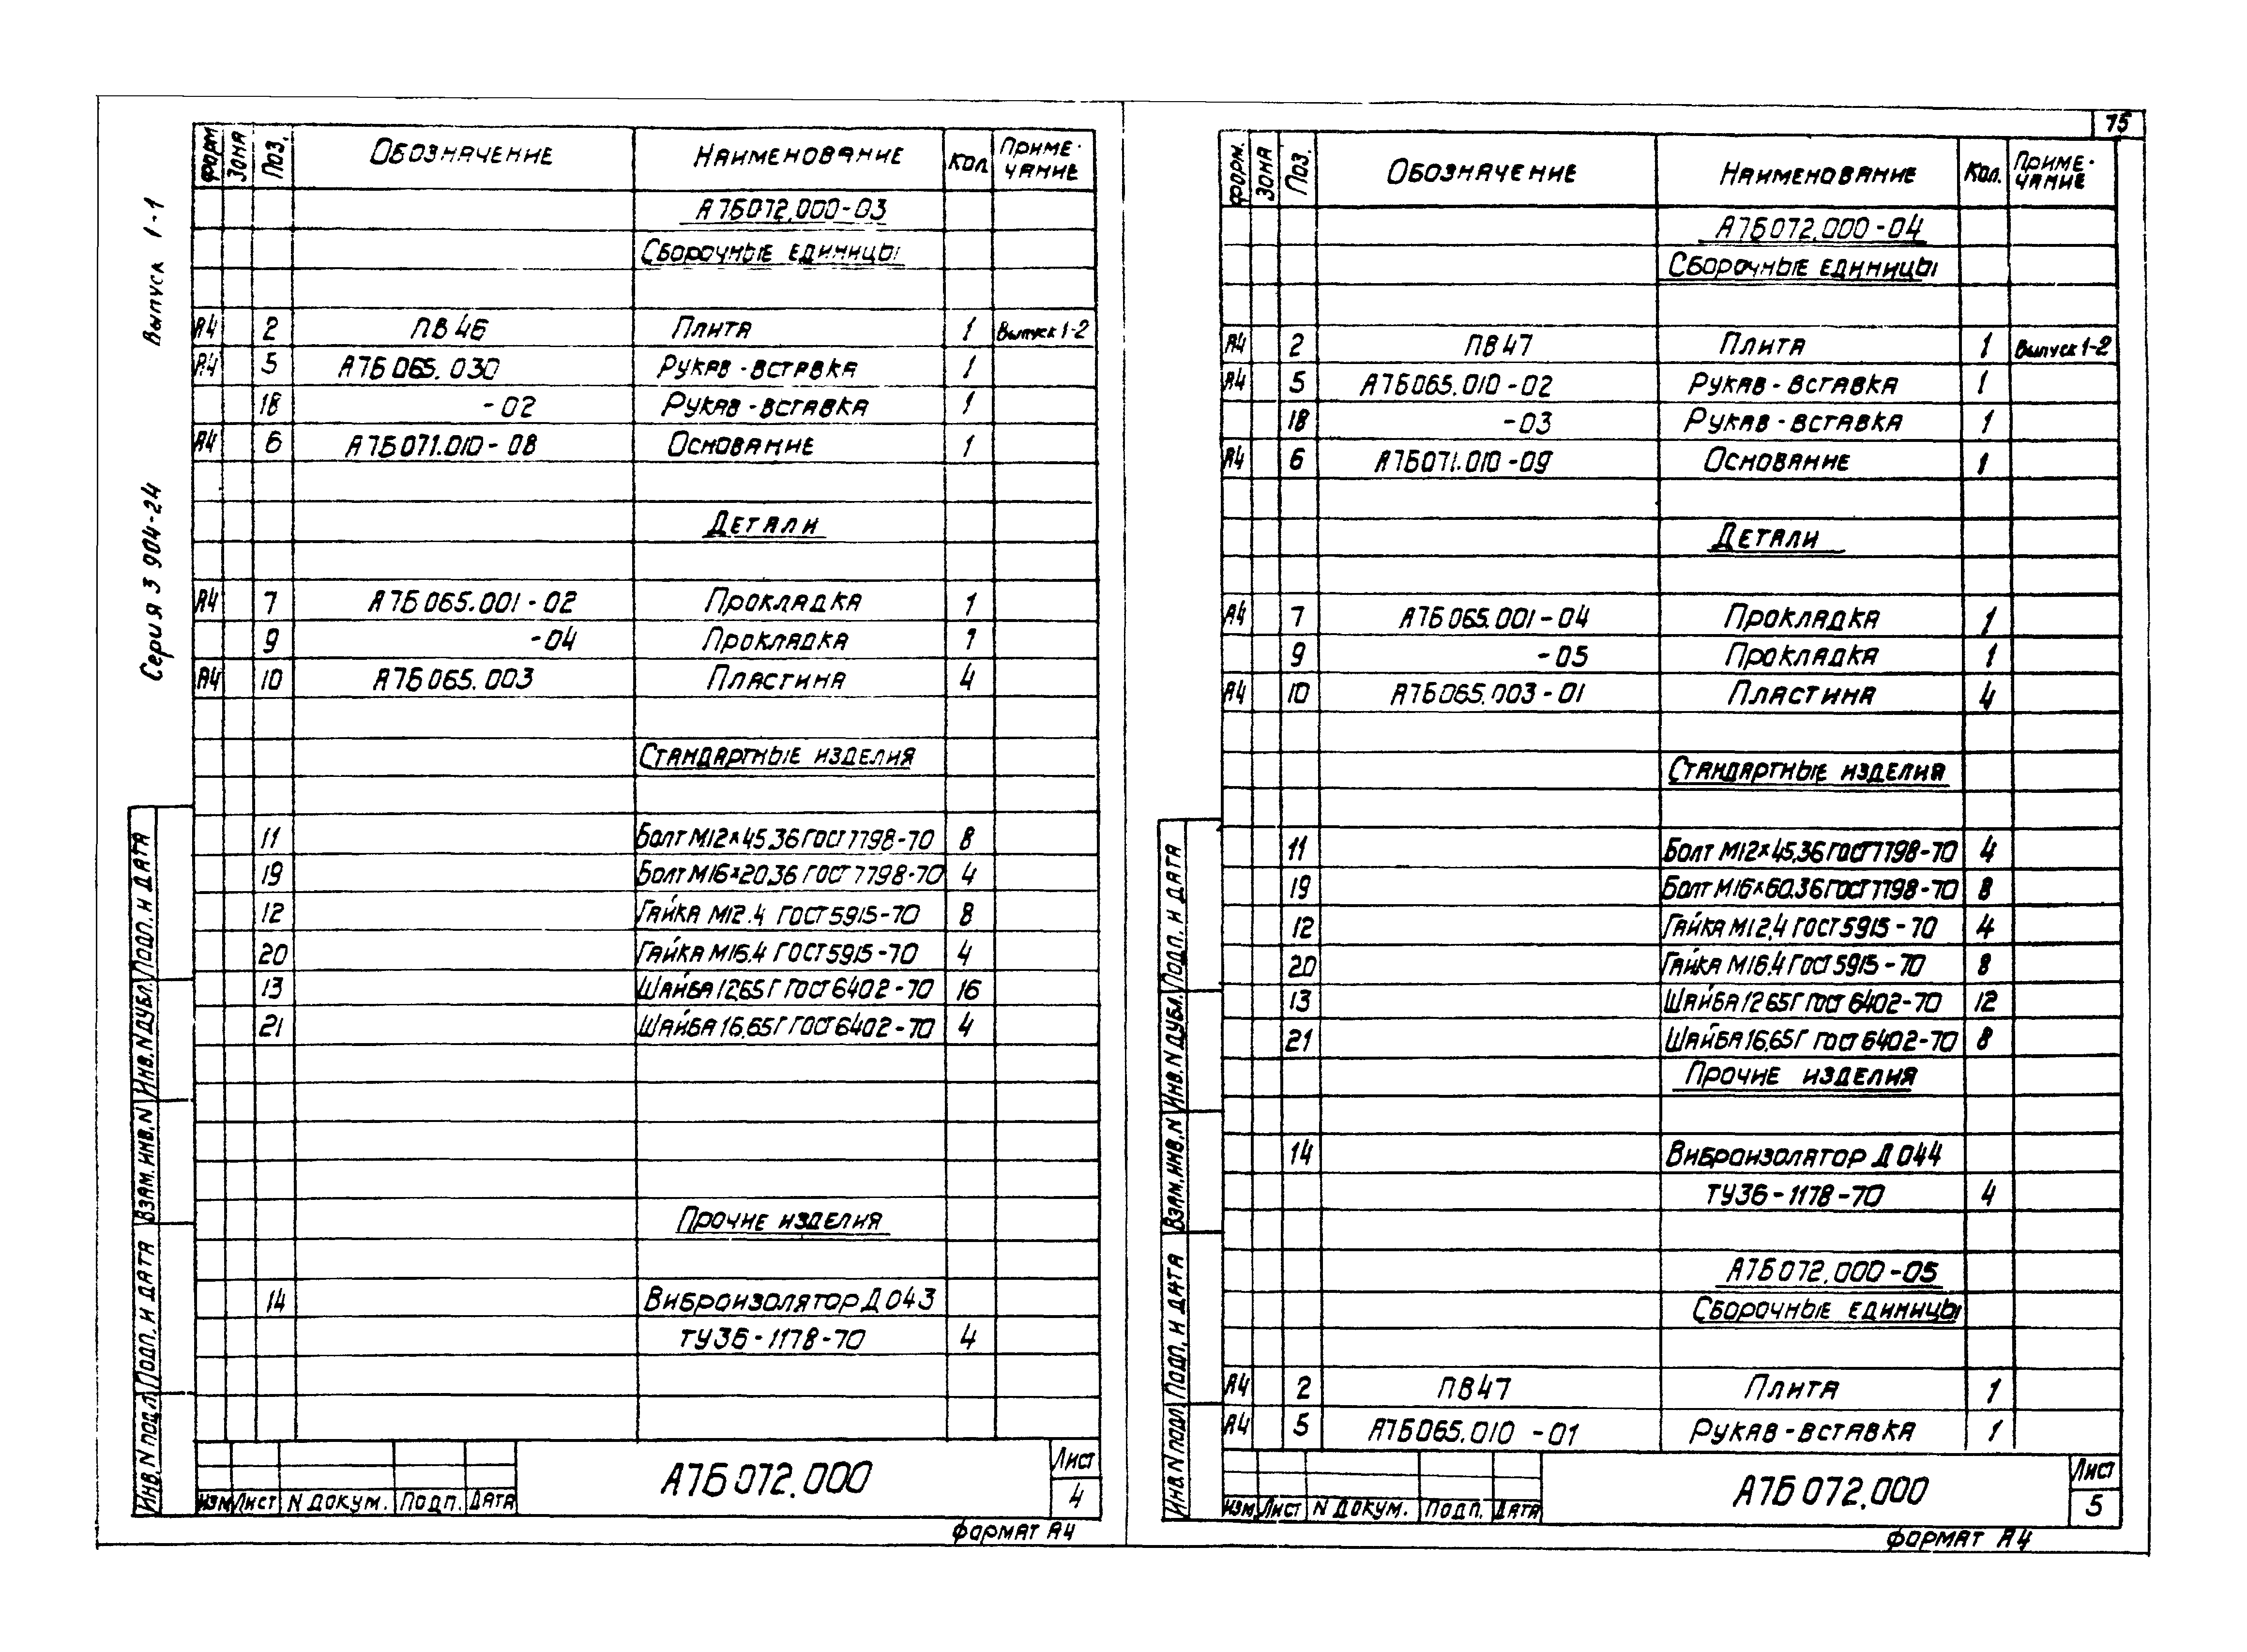 Серия 3 904-24 Выпуск 1-1
Форм Зона Поз. Обозначение Наименование Кол Приме-
чание
А7Б072.000-03
Сборочные единицы
А4 2 ПВ46 Плита 1 Выпуск 1-2
А4 5 А7Б065.030 Рукав-вставка 1
18 -02 Рукав-вставка 1
А4 6 А7Б071.010-08 Основание 1
Детали
А4 7 А7Б065.001-02 Прокладка 1
9 -04 Прокладка 1
А4 10 А7Б065.003 Пластина 4
Стандартные изделия
11 Болт М12×45.36 ГОСТ 7798-70 8
19 Болт М16×20.36 ГОСТ 7798-70 4
12 Гайка М12.4 ГОСТ 5915-70 8
20 Гайка М16.4 ГОСТ 5915-70 4
13 Шайба 12.65Г ГОСТ 6402-70 16
21 Шайба 16.65Г ГОСТ 6402-70 4
Прочие изделия
14 Виброизолятор Д043
ТУ36-1178-70 4
Инв.N подл. Подп. и дата Взам.инв.N Инв.N дубл. Подп. и дата
Изм Лист N докум. Подп. Дата
А7Б072.000
Лист
4
Формат А4
75
Форм. Зона Поз. Обозначение Наименование Кол. Приме-
чание
А7Б072.000-04
Сборочные единицы
А4 2 ПВ47 Плита 1 Выпуск 1-2
А4 5 А7Б065.010-02 Рукав-вставка 1
18 -03 Рукав-вставка 1
А4 6 А7Б071.010-09 Основание 1
Детали
А4 7 А7Б065.001-04 Прокладка 1
9 -05 Прокладка 1
А4 10 А7Б065.003-01 Пластина 4
Стандартные изделия
11 Болт М12×45.36 ГОСТ 7798-70 4
19 Болт М16×60.36 ГОСТ 7798-70 8
12 Гайка М12.4 ГОСТ 5915-70 4
20 Гайка М16.4 ГОСТ 5915-70 8
13 Шайба 12 65Г ГОСТ 6402-70 12
21 Шайба 16.65Г ГОСТ 6402-70 8
Прочие изделия
14 Виброизолятор Д044
ТУ36-1178-70 4
А7Б072.000-05
Сборочные единицы
А4 2 ПВ47 Плита 1
А4 5 А7Б065.010 -01 Рукав-вставка 1
Инв.N подл. Подп. и дата Взам.инв.N Инв.N дубл. Подп. и дата
Изм Лист N докум. Подп. Дата
А7Б072.000
Лист
5
Формат А4